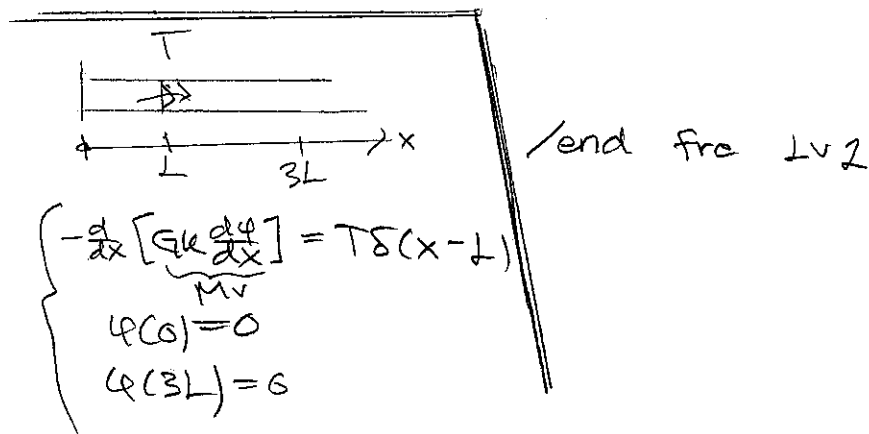 T
L 3L x
/end fre Lv2
-d/dx [GK dφ/dx] = Tδ(x-L)
Mv
φ(0)=0
φ(3L)=0